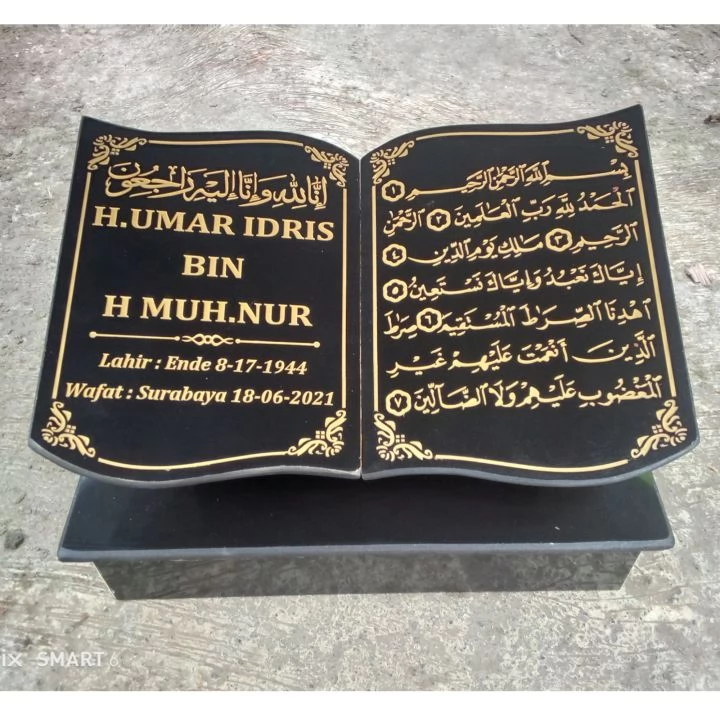 إنا لله وإنا إليه راجعون
H.UMAR IDRIS
BIN
H MUH.NUR
Lahir : Ende 8-17-1944
Wafat : Surabaya 18-06-2021
بِسْمِ اللَّهِ الرَّحْمٰنِ الرَّحِيمِ ١
الْحَمْدُ لِلَّهِ رَبِّ الْعَالَمِينَ ٢ الرَّحْمٰنِ
الرَّحِيمِ ٣ مَالِكِ يَوْمِ الدِّينِ ٤
إِيَّاكَ نَعْبُدُ وَإِيَّاكَ نَسْتَعِينُ ٥
اهْدِنَا الصِّرَاطَ الْمُسْتَقِيمَ ٦ صِرَاطَ
الَّذِينَ أَنْعَمْتَ عَلَيْهِمْ غَيْرِ
الْمَغْضُوبِ عَلَيْهِمْ وَلَا الضَّالِّينَ ٧
IX SMART 6